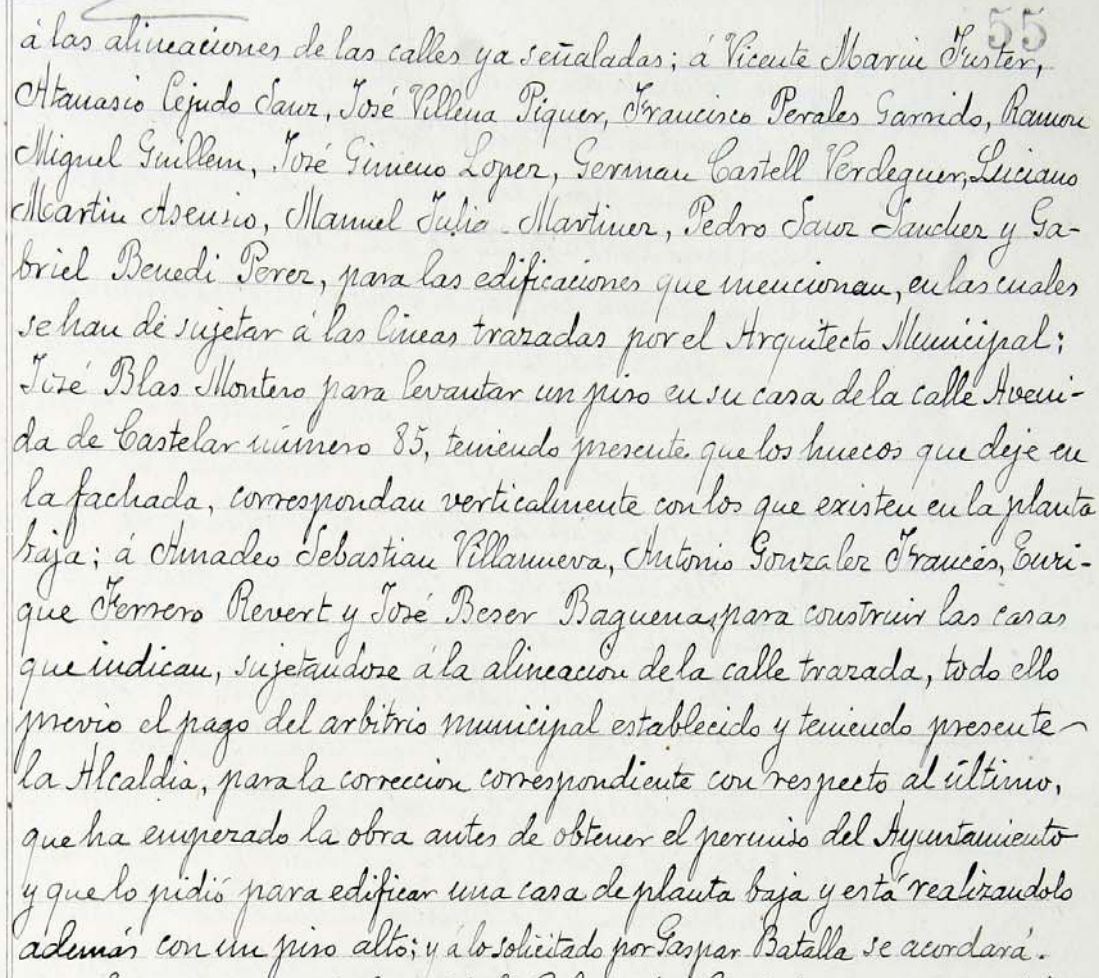 55
á las alineaciones de las calles ya señaladas; á Vicente Marin Fuster,
Atanasio Cejudo Sanz, José Villena Piquer, Francisco Perales Garrido, Ramon
Miguel Guillem, José Gimeno Lopez, German Castell Verdeguer, Luciano
Martin Asensio, Manuel Julia Martinez, Pedro Sanz Sanchez y Ga-
briel Benedi Perez, para las edificaciones que mencionan, en las cuales
se han de sujetar á las lineas trazadas por el Arquitecto Municipal;
José Blas Montero para levantar un piso en su casa de la calle Aveni-
da de Castelar número 85, teniendo presente que los huecos que deje en
la fachada, correspondan verticalmente con los que existen en la planta
baja; á Amadeo Sebastian Villanueva, Antonio Gonzalez Francés, Enri-
que Ferrero Revert y José Beser Baguena, para construir las casas
que indican, sujetandose á la alineación de la calle trazada, todo ello
previo el pago del arbitrio municipal establecido y teniendo presente
la Alcaldia, para la correccion correspondiente con respecto al último,
que ha empezado la obra antes de obtener el permiso del Ayuntamiento
y que lo pidió para edificar una casa de planta baja y está realizandolo
además con un piso alto; y á lo solicitado por Gaspar Batalla se acordará.